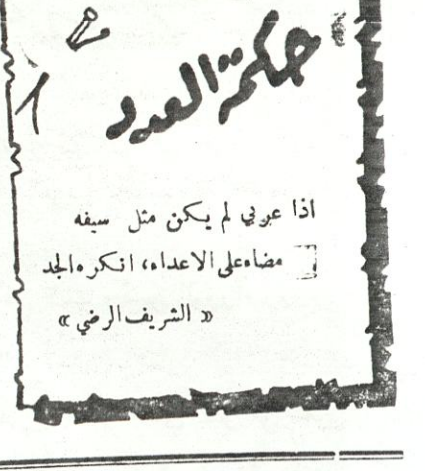 حكمة العدد
اذا عربي لم يكن مثل سيفه
مضاء على الاعداء، انكره الجد
« الشريف الرضي »